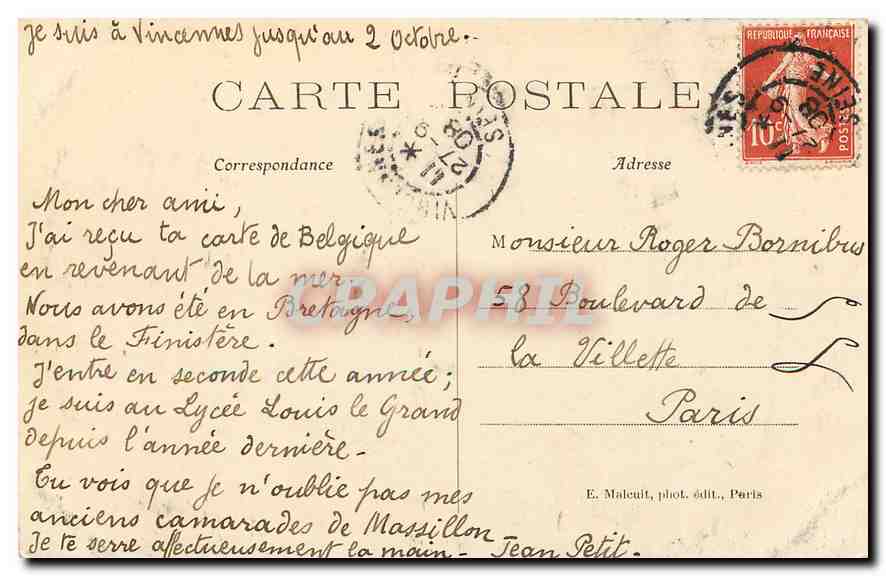 Je suis à Vincennes jusqu'au 2 Octobre.
CARTE POSTALE
RÉPUBLIQUE FRANÇAISE
10c
POSTES
SEINE
27-9
08
Correspondance
Adresse
Mon cher ami,
J'ai reçu ta carte de Belgique
en revenant de la mer.
Nous avons été en Bretagne,
dans le Finistère.
J'entre en seconde cette année;
je suis au Lycée Louis le Grand
depuis l'année dernière.
Tu vois que je n'oublie pas mes
anciens camarades de Massillon
Je te serre affectueusement la main - Jean Petit.
Monsieur Roger Bornibus
58 Boulevard de
la Villette
Paris
E. Malcuit, phot. édit., Paris
CPAPHIL